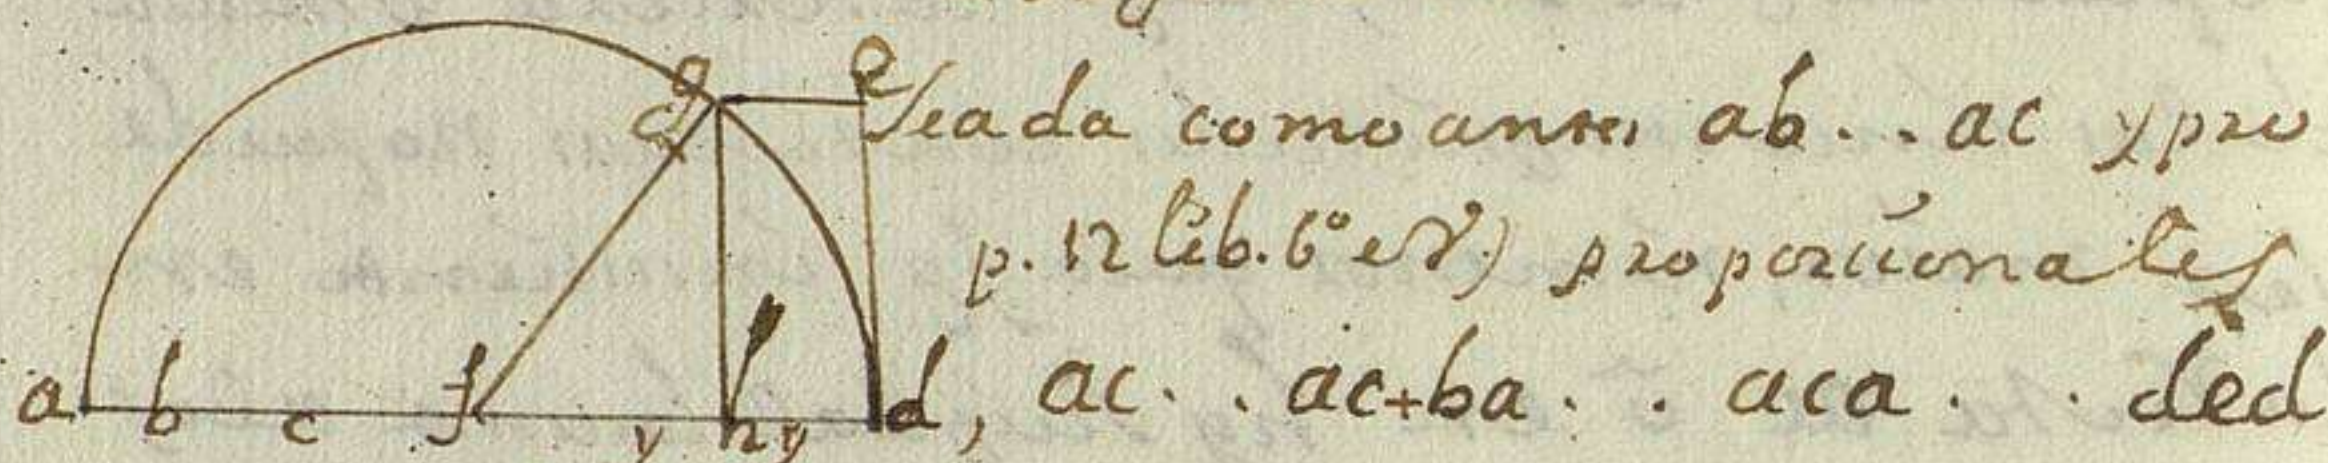 g e
c
Seada como antes ab. . ac y pro
p. 12 lib. 6º
proporcionales
a b c f y h y d, ac. . ac+ba. . aca. . ded